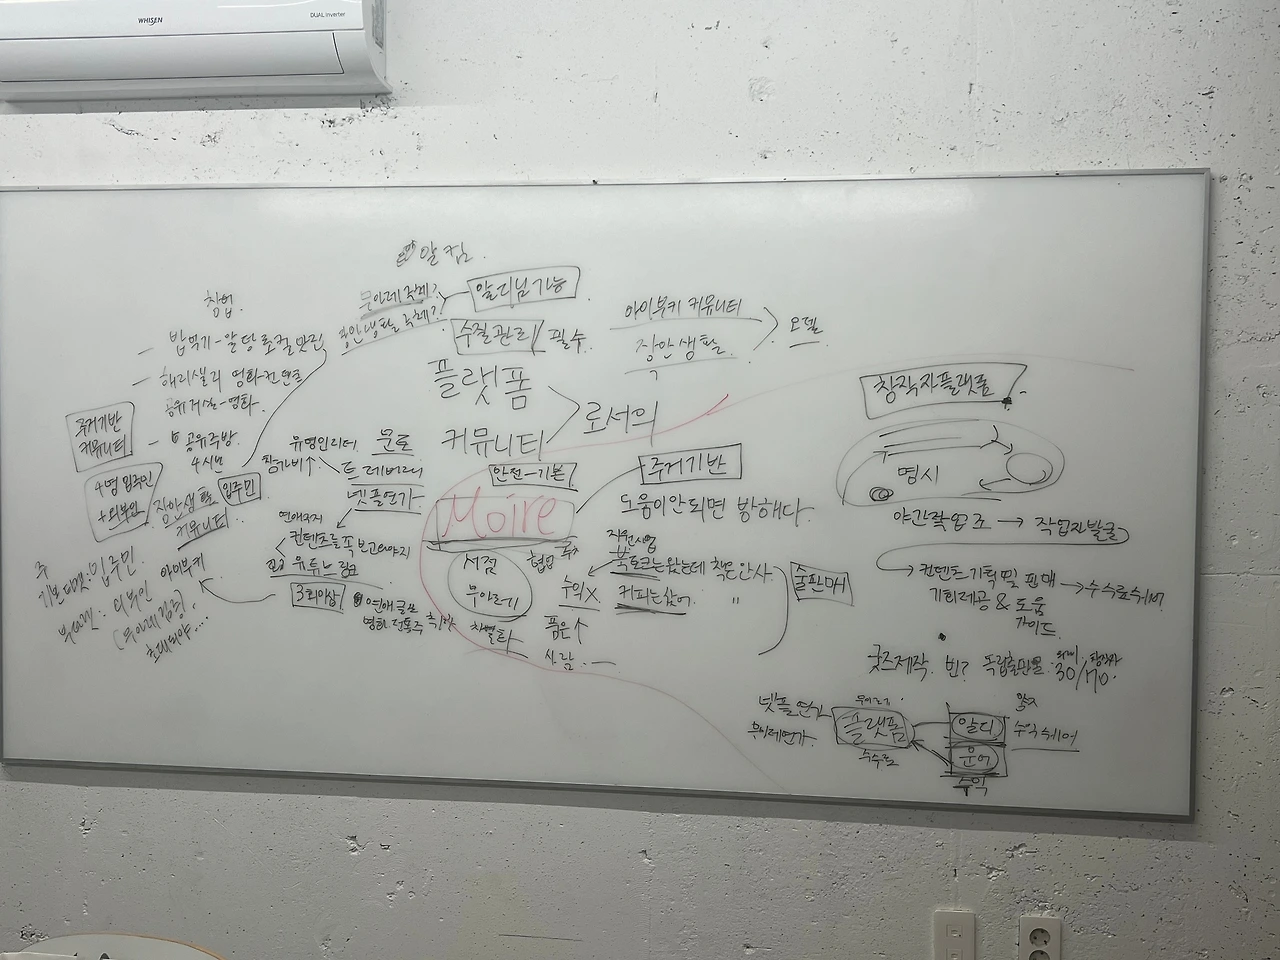 WHISEN
DUAL Inverter
알 킵.
무아레 국제?
장안생활 국제??
알디님 가능
수질관리 필수
플랫폼
커뮤니티
로서의
아이부키 커뮤니티
장안생활
모델
창업.
- 밥먹기-알당 로컬맛집
- 해리샐리 영화컨텐츠
공유거실-영화
- 공유주방
4시반
주거기반
커뮤니티
4명 입주민
+외부인
장안생활
커뮤니티
입주민
주
기본타겟: 입주민
외부인
아이부키
유명인리더
참가비↑
문토
트레바리
넷플연가
컨텐츠를 꼭 보고와야지
3회이상
안전-기본
Moire
서점
무아레기
차별화
협업
수익X
품은↑
사람 -
주거기반
도움이 안되면 방해다.
지원사업
북토크는 왔는데 책은 안사
커피는 샀어.
출판매
창작자플랫폼
명시
야간작업조 → 작업자발굴
→ 컨텐츠 기획 및 판매 → 수수료쉐어
기회제공 & 도움
가이드
굿즈제작.
독립출판물
30/70.
넷플연가
무아레연가
플랫폼
수수료
알디
운어
수익
수익쉐어